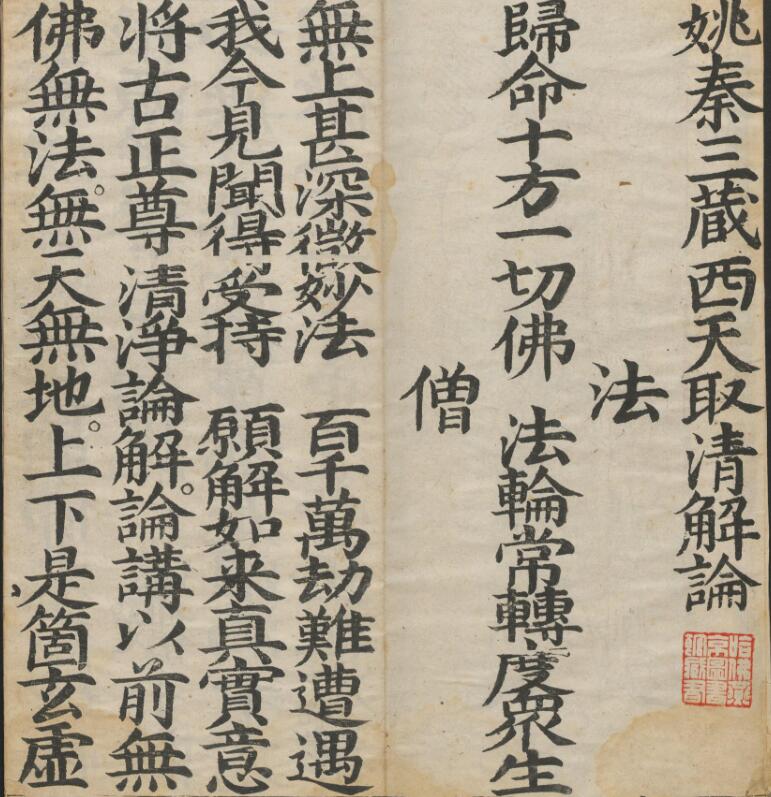 姚秦三藏西天取清解論
法
歸命十方一切佛 法輪常轉度眾生
僧
無上甚深微妙法 百千萬劫難遭遇
我今見聞得受持 願解如来真實意
将古正尊 清淨論解。論講以前無
佛無法。無天無地。上下是箇玄虛